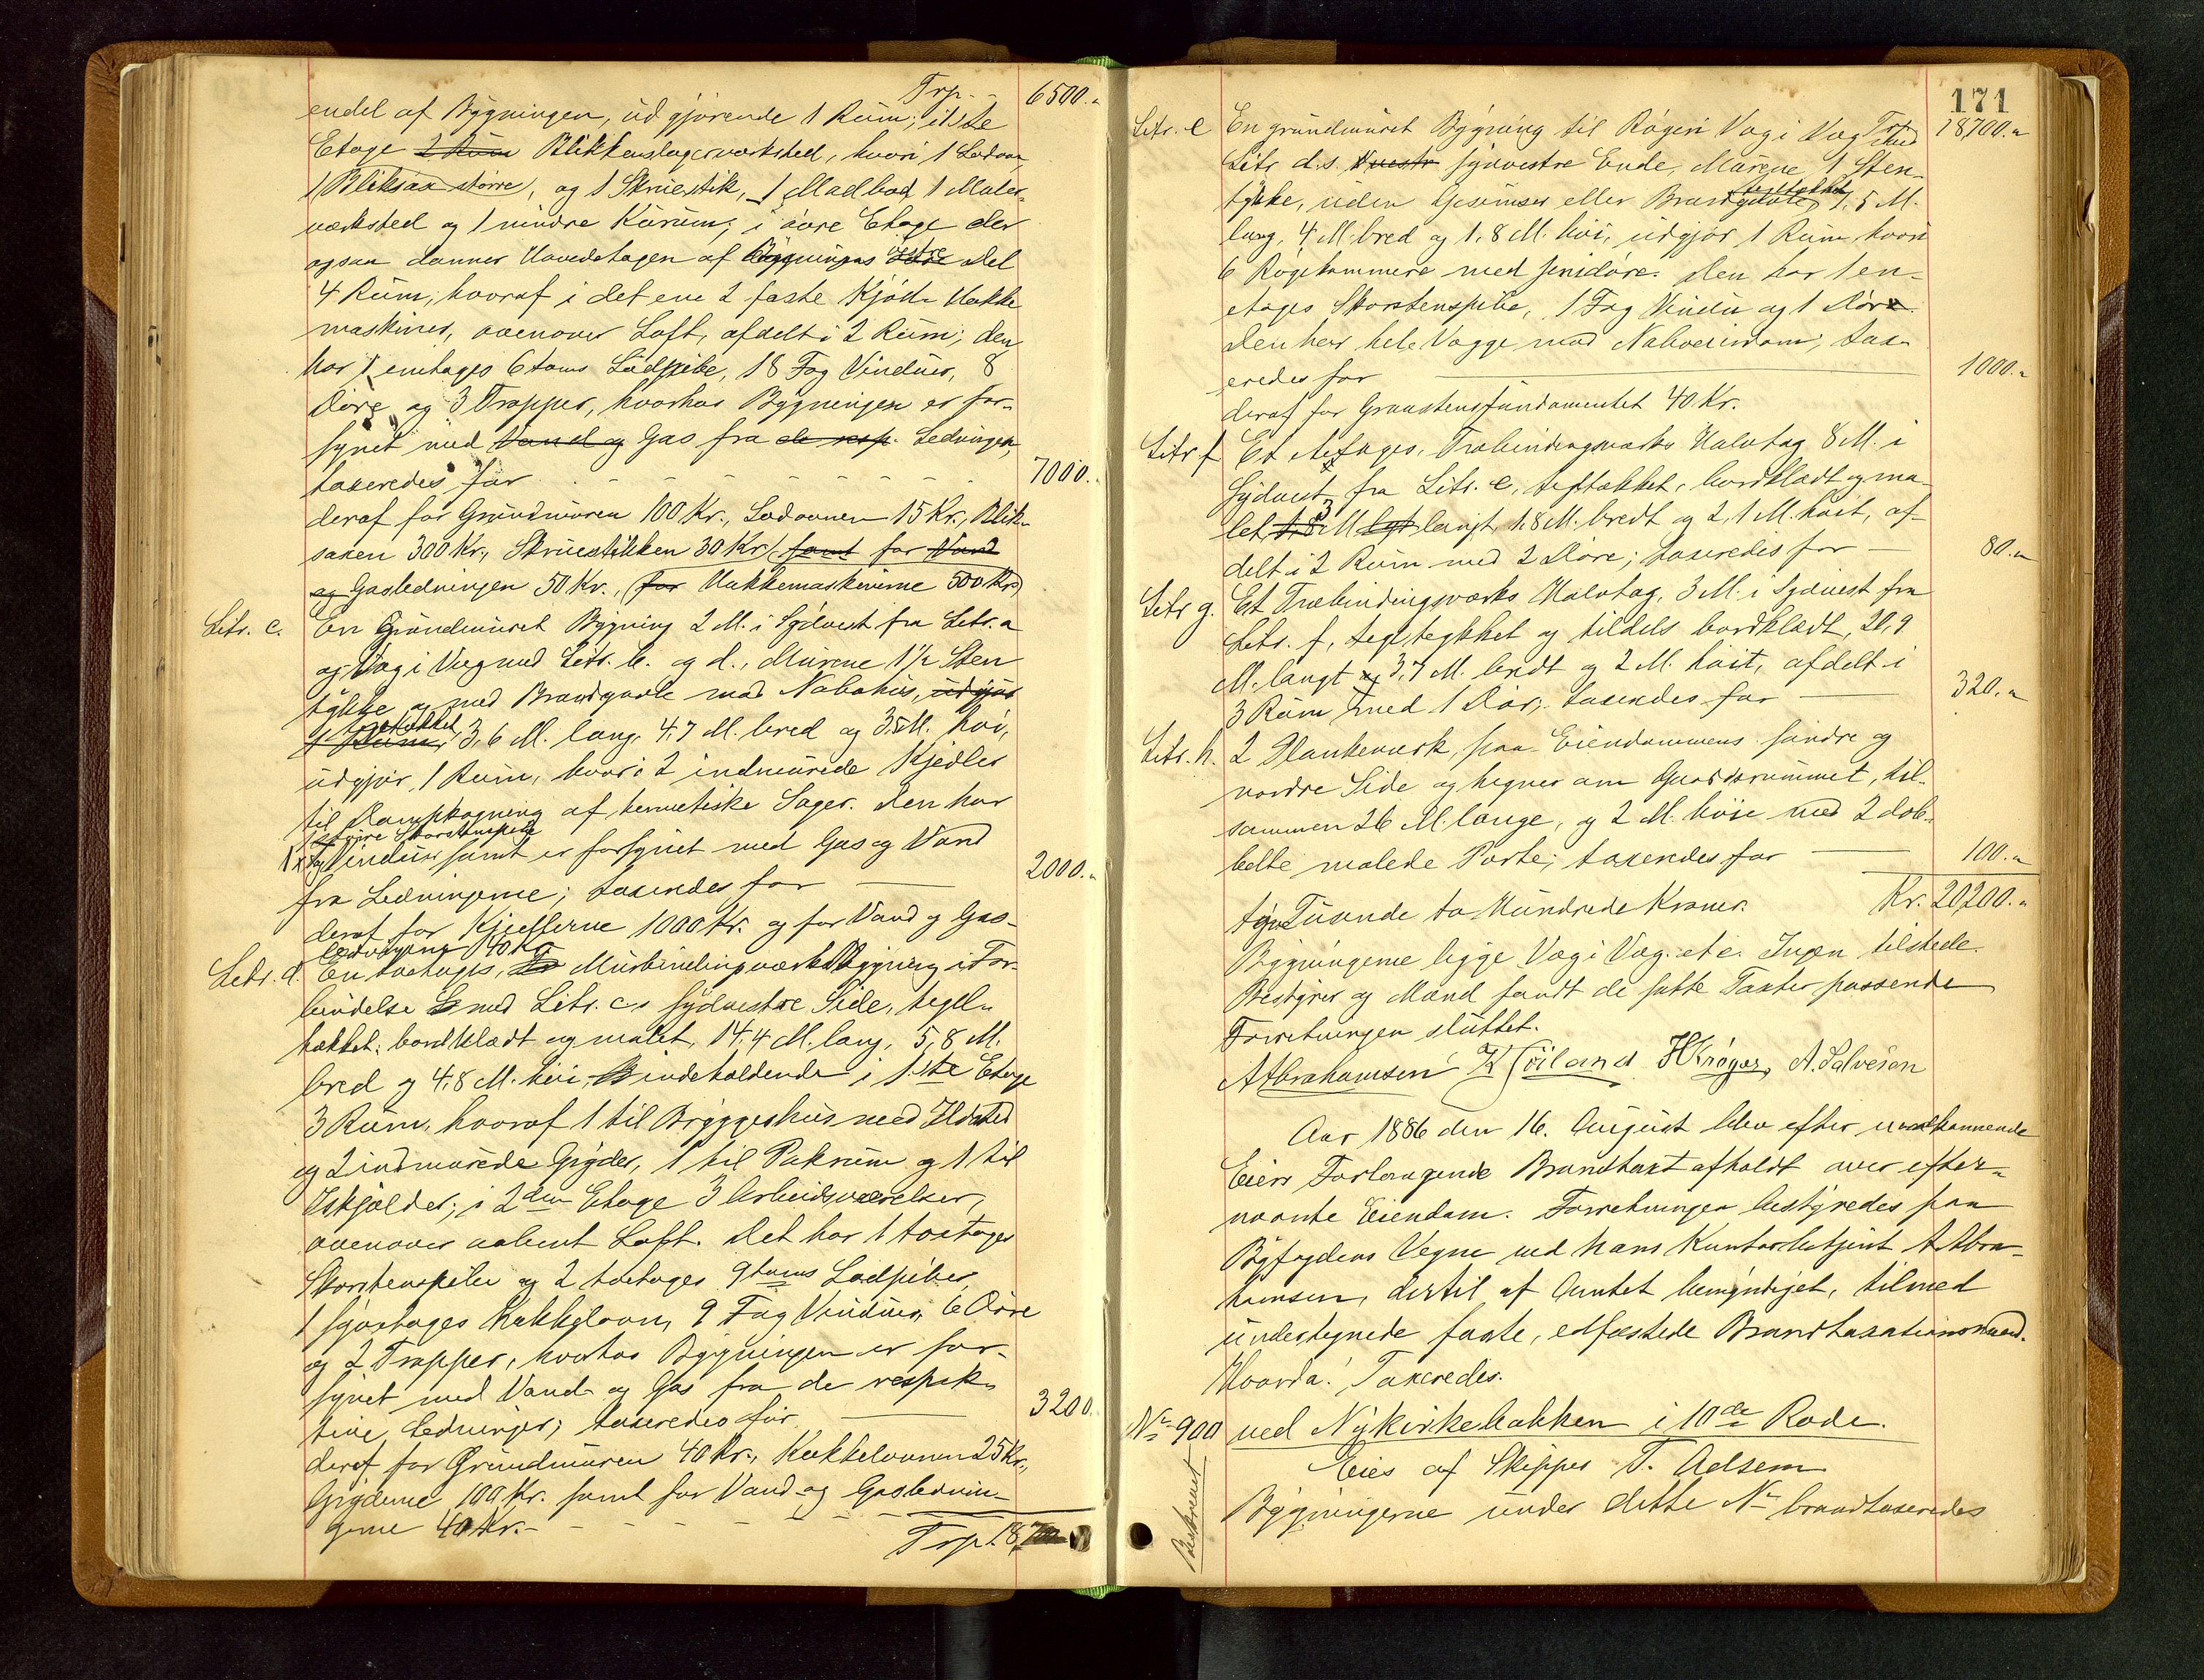 Trp. - 6500.-
endel af Bygningen, udgjørende 1 Rum; i 1ste
Etage 2 Rum Blikkenslagerværksted, hvori 1 Lodovn
1 Bliksax større, og 1 Skruestik, 1 Madbod, 1 Maler-
værksted og 1 mindre Kurum; i øvre Etage der
ogsaa danner Hovedetagen af Bygningens vestre Del
4 Rum, hvoraf i det ene 2 faste Kjød- Hakke
maskiner, ovenover Loft, afdelt i 2 Rum; den
har 1 enetages 6toms Lodpibe, 18 Fag Vinduer, 8
Døre og 3 Trapper, hvorhos Bygningen er for-
synet med Vand og Gas fra de resp. Ledninger,
taxeredes for - - - 7000.-
deraf for Grundmuren 100 Kr., Lodovnen 15 Kr., Blik-
saxen 300 Kr., Skruestikken 30 Kr, samt for Vand
og Gasledningen 50 Kr., for Hakkemaskinerne 500 Kr.
Litr. c. En Grundmuret Bygning 2 M. i Sydvest fra Litr. a
og Væg i Væg med Litr. b. og d., Murene 1½ Sten
tykke og med Brandgavle mod Nabohus, udgjør
1 Rum, tegltækket, 3,6 M. lang, 4,7 M. bred og 3,5 M. høi,
udgjør 1 Rum, hvori 2 indmurede Kjedler
til Dampkogning af hermetiske Sager. Den har
1 større Skorstenspibe
1 Fag Vinduer samt er forsynet med Gas og Vand
fra Ledningerne; taxeredes for 2000.-
deraf for Kjedlerne 1000 Kr. og for Vand og Gas-
ledningerne 40 Kr.
Litr. d. En toetages, Murbindingsværks Bygning i For-
bindelse med Litr. c.s sydvestre Side, tegl-
hækket, bordklædt og malet, 14,4 M. lang, 5,8 M.
bred og 4,8 M. høi, indeholdende i 1ste Etage
3 Rum, hvoraf 1 til Bryggerhus med Ildsted
og 2 indmurede Gryder, 1 til Pakrum og 1 til
Iskjælder; i 2den Etage 3 Arbeidsværelser,
ovenover aabent Loft. Det har 1 toetages
Skorstenspibe og 2 toetages 9toms Lodpiber,
1 Kakkelovn, 9 Fag Vinduer, 6 Døre
og 2 Trapper, hvorhos Bygningen er for-
synet med Vand- og Gas fra de respek-
tive Ledninger; taxeredes for 3200.
deraf for Grundmuren 40 Kr., Kakkelovnen 25 Kr.,
Gryderne 100 Kr. samt for Vand- og Gaslednin-
gerne 40 Kr. - - - Trp. 18,700
171
Litr. e En grundmuret Bygning til Røgeri Væg i Væg med Trp. 18700.-
Litr d.s. sydvestre Ende, Murene 1 Sten
tykke, uden Gesimser eller Brandgavle, tegltækket, 7,5 M.
lang, 4 M. bred og 1,8 M. høi, udgjør 1 Rum, hvori
6 Røgekammere med Jerndøre. Den har 1 en-
etages Skorstenspibe, 1 Fag Vindu og 1 Dør.
Den har hele Vægge mod Naboeiendom; tax-
eredes for 1000.-
deraf for Graastensfundamentet 40 Kr.
Litr. f Et etages, Træbindingsværks Halvtag 8 M. i
Sydvest fra Litr. e, tegltækket, bordklædt og ma-
let, 3 M langt, 1,8 M. bredt og 2,1 M. høit, af-
delt i 2 Rum med 2 Døre; taxeredes for 80.-
Litr g. Et Træbindingsværks Halvtag, 3 M. i Sydvest fra
Litr. f, tegltækket og tildels bordklædt, 20,9
M. langt, 3,7 M. bredt og 2 M. høit, afdelt i
3 Rum med 1 Dør; taxeredes for 320.-
Litr. h. 2 Plankeværk, paa Eiendommens søndre og
nordre Side og hegner om Gaardsrummet, til-
sammen 26 M. lange, og 2 M. høie med 2 dob-
belte malede Porte; taxeredes for 100.-
tyve Tusende to Hundrede Kroner. Kr. 20,200.-
Bygningerne ligge Væg i Væg. etc. Ingen tilstede.
Bestyrer og Mænd fandt de satte Taxter passende
Forretningen sluttet.
A Abrahamsen K Høiland H Krøger, A. Salvesen
Aar 1886 den 16. August blev efter vedkommende
Eiers Forlangende Brandtaxt afholdt over efter-
nævnte Eiendom. Forretningen bestyredes paa
Byfogdens Vegne ved hans Kontorbetjent A. Abra-
hamsen, dertil af Amtet bemyndiget, tilmed
undertegnede faste, edfæstede Brandtaxationsmænd.
Hvorda: Taxeredes.
No 900 ved Nykirkebakken i 10de Rode.
Eies af Skipper T. Adsem
Beskrevet
Bygningerne under dette No brandtaxeredes